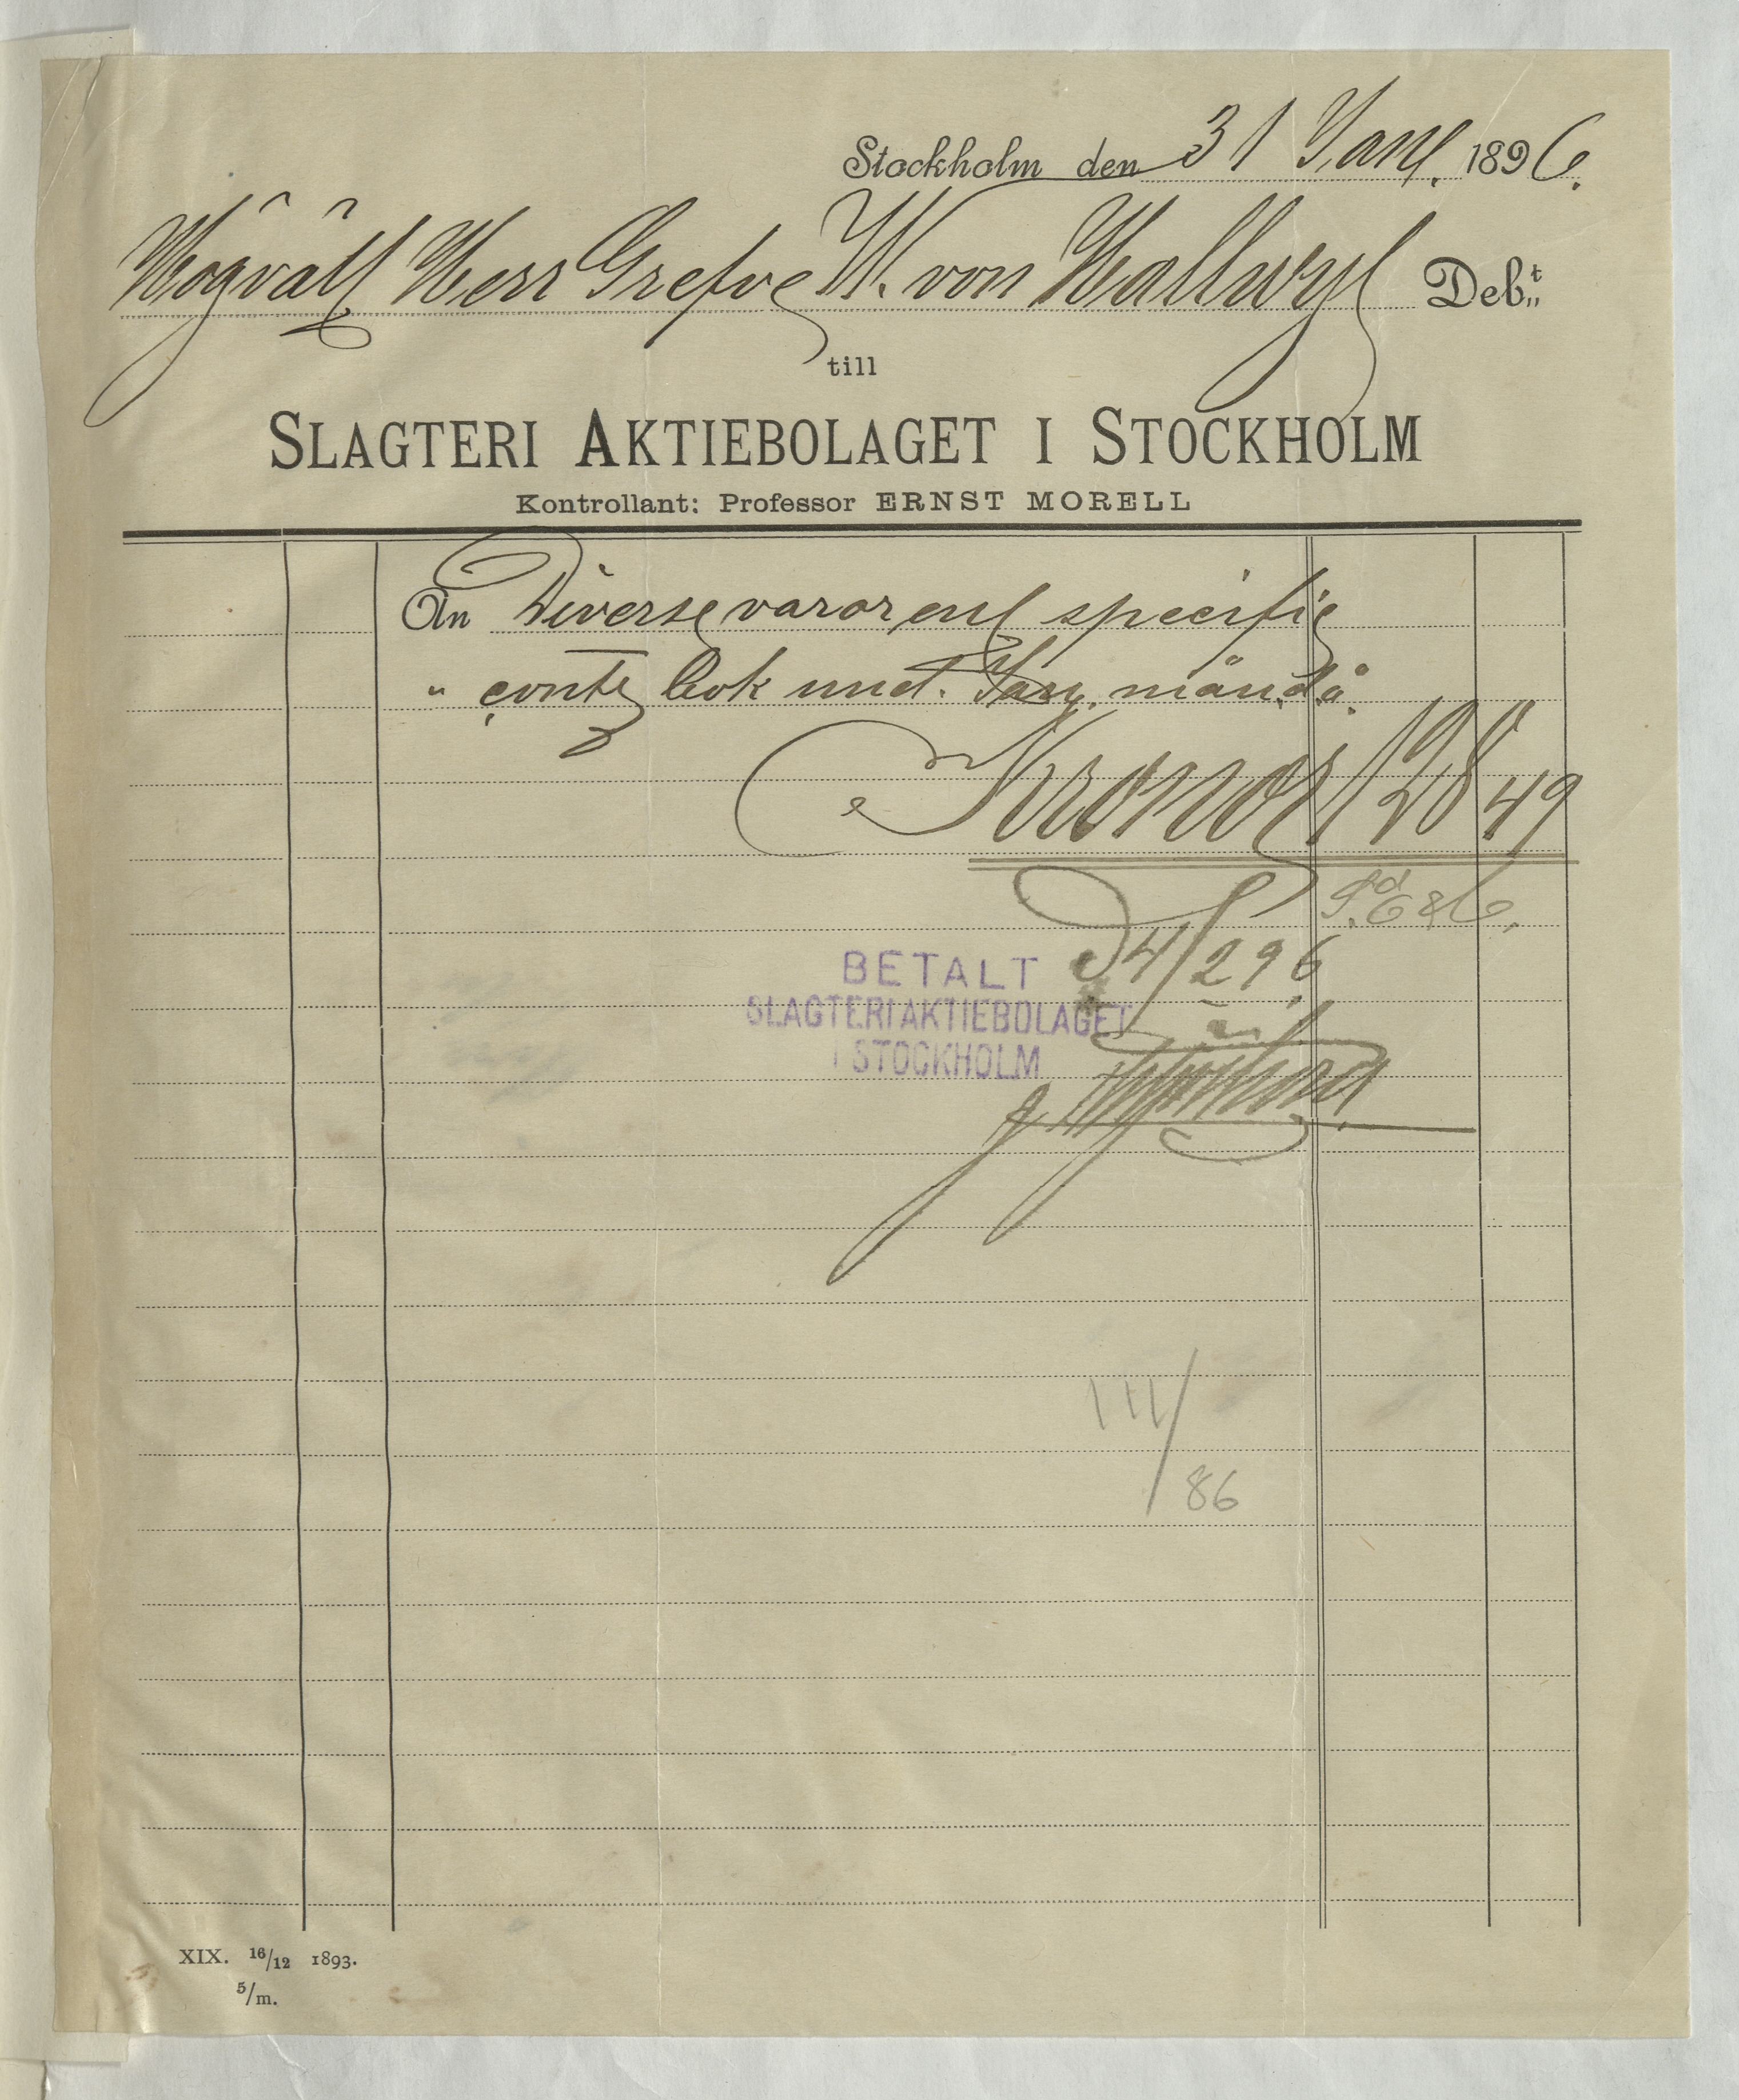 Stockholm den 31 Jany. 1896.
Högvälb Herr Grefve W. von Hallwyl Deb:t
till
SLAGTERI AKTIEBOLAGET I STOCKHOLM
Kontrollant: Professor ERNST MORELL
An Diverse varor enl specifie
" contr bok und. Jany. månad
Kronor 128 49
BETALT 4/2 96
SLAGTERI AKTIEBOLAGET
I STOCKHOLM
111/86
XIX. 16/12 1893.
5/m.